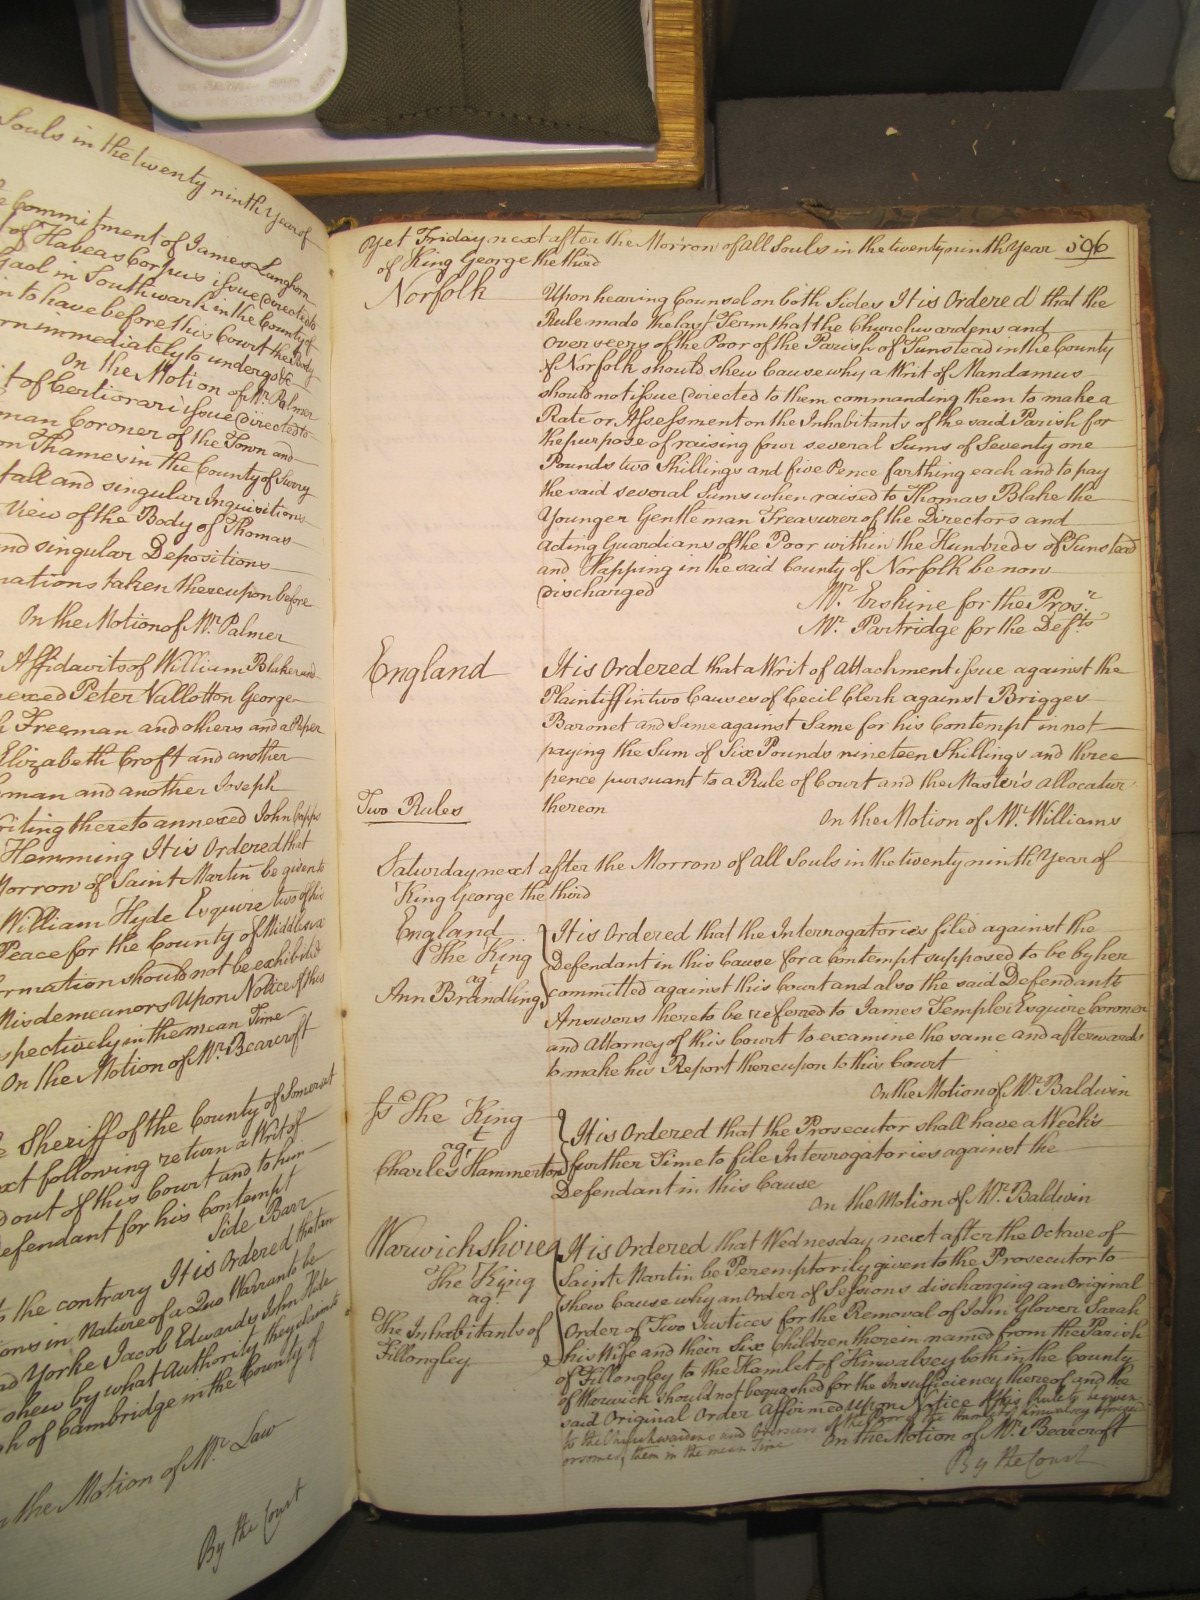 Souls in the twenty ninth Year of
Commitment of James Langhorn
of Habeas Corpus issue directed to
Gaol in Southwark in the County of
to have before this Court the Body
immediately to undergo &c
On the Motion of Mr. Palmer
of Certiorari issue directed to
man Coroner of the Town and
on Thames in the County of Surry
all and singular Inquisitions
View of the Body of Thomas
and singular Depositions
nations taken thereupon before
On the Motion of Mr. Palmer
Affidavits of William Blake and
nexed Peter Vallotton George
Freeman and others and a Paper
Elizabeth Croft and another
man and another Joseph
riting thereto annexed John
Hemming It is Ordered that
Morrow of Saint Martin be given to
William Hyde Esquire two of his
Peace for the County of Middlesex
rmation should not be exhibited
Misdemeanors Upon Notice of this
spectively in the mean Time
On the Motion of Mr. Bearcroft
Sheriff of the County of Somerset
ext following return a Writ of
out of this Court and to him
Defendant for his Contempt
Side Barr
to the contrary It is Ordered that an
ons in Nature of a Quo Warranto be
Yorke Jacob Edwards John Hide
shew by what Authority they claim to
of Cambridge in the County of
the Motion of Mr. Law
By the Court
Yet Friday next after the Morrow of All Souls in the twenty ninth Year 596
of King George the third
Norfolk
Upon hearing Counsel on both Sides It is Ordered that the
Rule made the last Term that the Churchwardens and
Overseers of the Poor of the Parish of Tunstead in the County
of Norfolk should shew Cause why a Writ of Mandamus
should not issue directed to them commanding them to make a
Rate or Assessment on the Inhabitants of the said Parish for
the purpose of raising four several Sums of Seventy one
Pounds two Shillings and five Pence farthing each and to pay
the said several Sums when raised to Thomas Blake the
Younger Gentleman Treasurer of the Directors and
acting Guardians of the Poor within the Hundreds of Tunstead
and Happing in the said County of Norfolk be now
discharged
Mr. Erskine for the Prosr.
Mr. Partridge for the Defts
England
It is Ordered that a Writ of Attachment issue against the
Plaintiff in two Causes of Cecil Clerk against Brigges
Baronet and Same against Same for his Contempt in not
paying the Sum of Six Pounds nineteen Shillings and three
pence pursuant to a Rule of Court and the Master's allocatur
Two Rules
thereon
On the Motion of Mr. Williams
Saturday next after the Morrow of All Souls in the twenty ninth Year of
King George the third
England
The King
agt
Ann Brandling
It is Ordered that the Interrogatories filed against the
Defendant in this Cause for a Contempt supposed to be by her
committed against this Court and also the said Defendants
Answers thereto be referred to James Templer Esquire Coroner
and Attorney of this Court to examine the same and afterwards
to make his Report thereupon to this Court
On the Motion of Mr. Baldwin
The King
agt
Charles Hammerton
It is Ordered that the Prosecutor shall have a Week's
further Time to file Interrogatories against the
Defendant in this Cause
On the Motion of Mr. Baldwin
Warwickshire
The King
agt.
The Inhabitants of
Fillongley
It is Ordered that Wednesday next after the Octave of
Saint Martin be Peremptorily given to the Prosecutor to
shew Cause why an Order of Sessions discharging an Original
Order of Two Justices for the Removal of John Glover Sarah
his Wife and their Six Children therein named from the Parish
of Fillongley to the Hamlet of Kinwalsey both in the County
of Warwick should not be quashed for the Insufficiency thereof and the
said Original Order Affirmed Upon Notice of this Rule to be given
to the Churchwardens and Overseers of the Poor of the Hamlet of Kinwalsey
or some of them in the mean Time
On the Motion of Mr. Bearcroft
By the Court